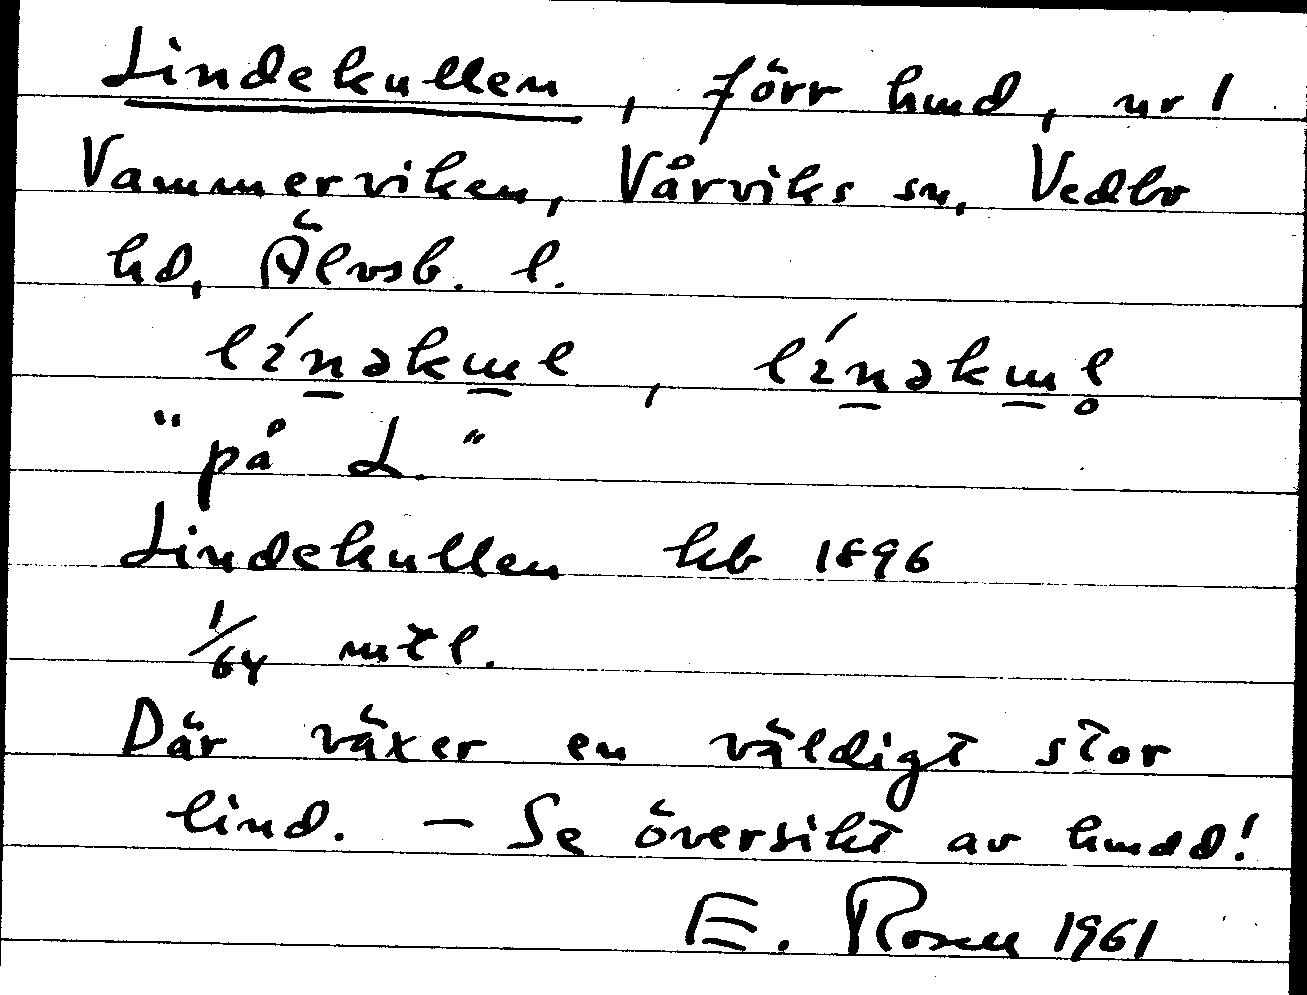 Lindekullen, förr hmd, nr 1
Vammerviken, Vårviks sn, Vedbo
hd, Älvsb. l.
"på L."
Lindekullen kb 1896
1/64 mtl.
Där växer en väldigt stor
lind. — Se översikt av hmdd!
E. Rosell 1961